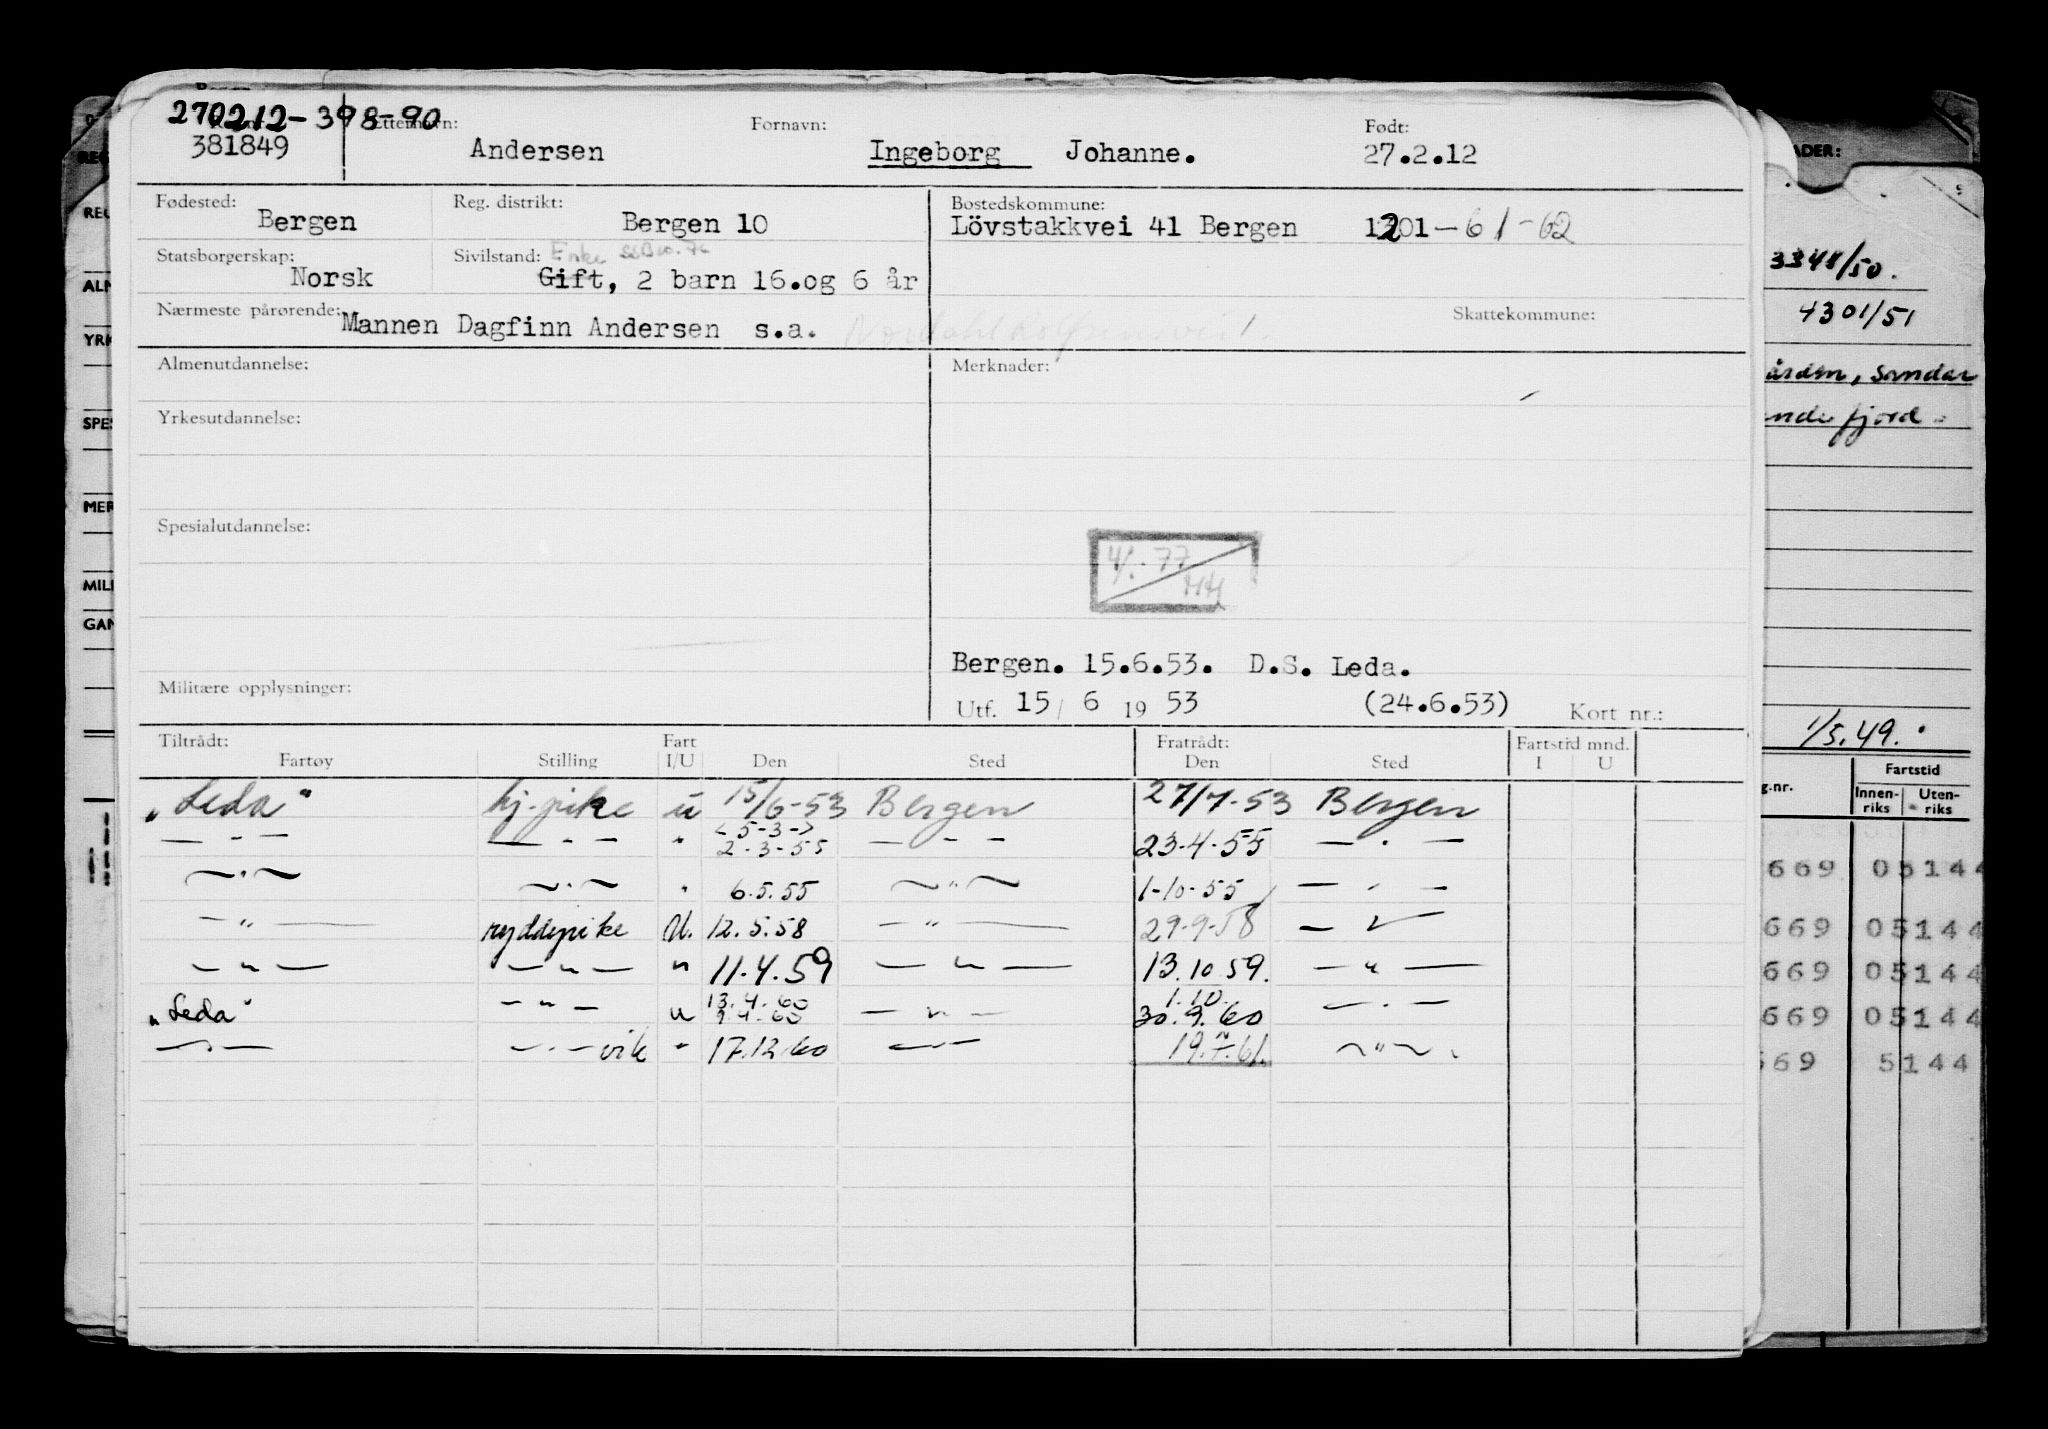 270212-398-90
Etternavn: Fornavn: Født:
381849 Andersen Ingeborg Johanne. 27.2.12
Fødested: Reg. distrikt: Bostedskommune:
Bergen Bergen 10 Lövstakkvei 41 Bergen 1201-61-62
Statsborgerskap: Sivilstand: Enke
Norsk Gift, 2 barn 16.og 6 år
Nærmeste pårørende: Mannen Dagfinn Andersen s.a. Skattekommune:
Almenutdannelse: Merknader:
Yrkesutdannelse:
Spesialutdannelse:
4/1.-77
HH
Bergen. 15.6.53. D.S. Leda.
Militære opplysninger:
Utf. 15/ 6 19 53 (24.6.53) Kort nr.:
Tiltrådt: Fart Fratrådt: Fartstid mnd.
Fartøy Stilling I/U Den Sted Den Sted I U
"Leda" hj.pike u 15/6-53 Bergen 27/7-53 Bergen
— " — — " — " <5-3-> — " — 23-4-55 — " —
2-3-55
— " — — " — " 6.5.55 — " — 1-10-55 — " —
— " — ryddepike U. 12.5.58 — " — 29-9-58 — " —
— " — — " — " 11.4.59 — " — 13.10.59. — " —
13.4.60 1.10.
"Leda" — " — u 9.4.60 — " — 30.9.60 — " —
— " — — " — vik " 17.12.60 — " — 19.7.61. — " —
ADER:
3348/50.
4301/51
ården, Sandar
ndefjord.
1/5.49.
g.nr. Fartstid
Innen-riks Uten-riks
669 05144
669 05144
669 05144
669 05144
669 5144
REG
ALM
YRK
SPES
MER
MILI
GAN